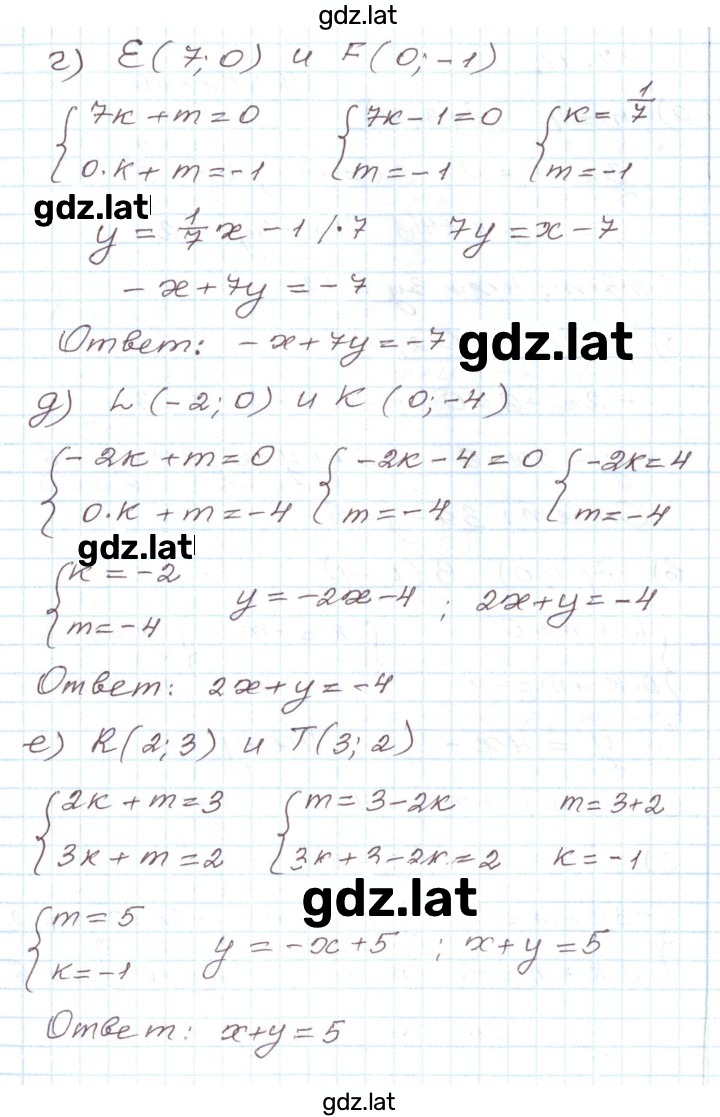 gdz.lat
г) E(7;0) и F(0;-1)
{7к+m=0 {7к-1=0 {к=1/7
{0·к+m=-1 {m=-1 {m=-1
gdz.lat
y=1/7x-1/·7 7y=x-7
-x+7y=-7
Ответ: -x+7y=-7 gdz.lat
д) L(-2;0) и K(0;-4)
{-2к+m=0 {-2к-4=0 {-2к=4
{0·к+m=-4 {m=-4 {m=-4
gdz.lat
{к=-2
{m=-4 y=-2x-4; 2x+y=-4
Ответ: 2x+y=-4
е) R(2;3) и T(3;2)
{2к+m=3 {m=3-2к m=3+2
{3к+m=2 {3к+3-2к=2 к=-1
gdz.lat
{m=5
{к=-1 y=-x+5; x+y=5
Ответ: x+y=5
gdz.lat